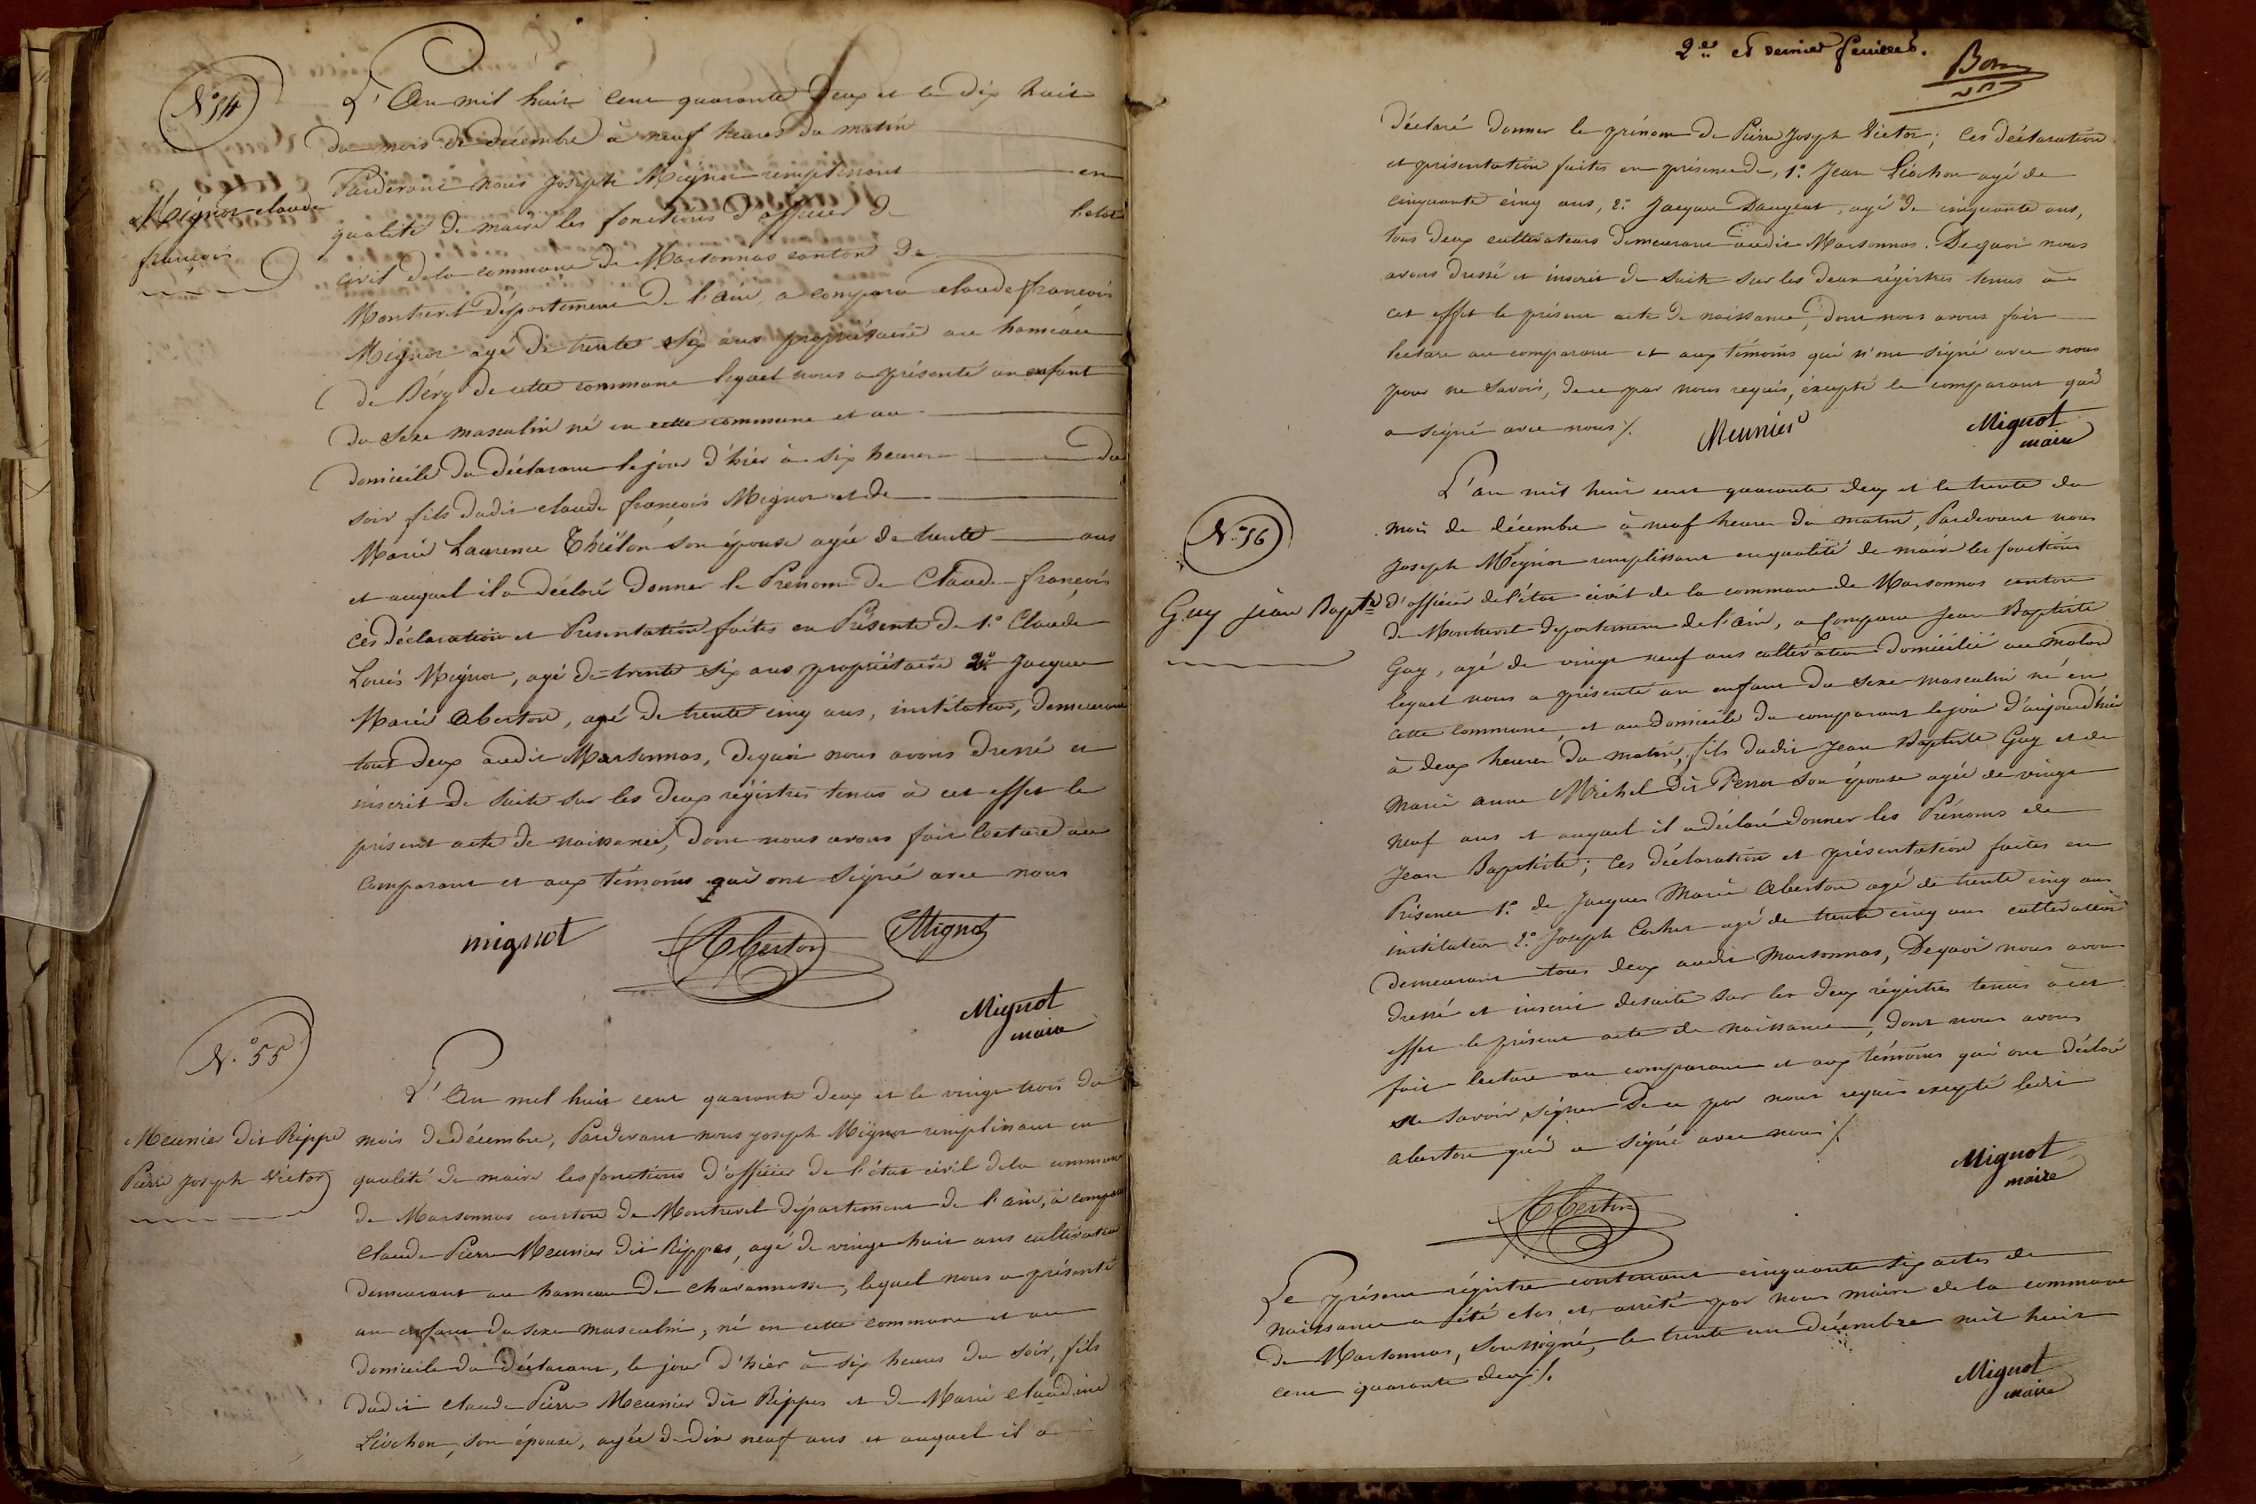 N° 54
Mignot claude
françois
L'An mil huit cent quarante deux et le dix huit
du mois de décembre à neuf heures du matin
Pardevant nous Joseph Mignot remplissant en
qualité de maire les fonctions d'officier de l'état
civil de la commune de Marsonnas canton de
Montrevel département de l'ain, a comparu claude françois
Mignot agé de trente six ans propriétaire au hameau
de Béry de cette commune lequel nous a présenté un enfant
du sexe masculin né en cette commune et au
domicile du déclarant le jour d'hier à six heures du
soir fils dudit claude françois Mignot et de
Marie Laurence Thiélon son épouse agée de trente ans
et auquel il a déclaré donner le Prenom de Claude françois
Ces déclaration et Presentation faites en Présente de 1° Claude
Louis Mignot, agé de trente six ans propriétaire 2° Jacques
Marie Aberton, agé de trente cinq ans, instituteur, demeurant
tous deux audit Marsonnas, Dequoi nous avons dressé et
inscrit de suite sur les deux régistres tenus à cet effet le
présent acte de naissance, dont nous avons fait lecture au
Comparant et aux témoins qui ont signé avec nous
mignot Aberton CMignot
Mignot
maire
N° 55
Meunier dit Rippe
Pierre Joseph Victor
L'An mil huit cent quarante deux et le vingt trois du
mois de décembre, Pardevant nous Joseph Mignot remplissant en
qualité de maire les fonctions d'officier de l'état civil de la commune
de Marsonnas canton de Montrevel département de l'ain, à comparu
Claude Pierre Meunier dit Rippes, agé de vingt huit ans cultivateur
demeurant au hameau de Chavannosse, lequel nous a présenté
un enfant du sexe masculin, né en cette commune et au
domicile du déclarant, le jour d'hier à six heures du soir, fils
dudit claude Pierre Meunier dit Rippes et de Marie Claudine
Liochon, son épouse, agée de dix neuf ans et auquel il a
2e et dernier feuillet.
déclaré donner le prénom de Pierre Joseph Victor; Ces déclaration
et présentation faites en présence de, 1° Jean Liochon agé de
cinquante cinq ans, 2° Jacques Daujeat, agé de cinquante ans,
tous deux cultivateurs demeurant audit Marsonnas. Dequoi nous
avons dressé et inscrit de suite sur les deux régistres tenus à
cet effet le présent acte de naissance, dont nous avons fait
lecture au comparant et aux témoins qui n'ont signé avec nous
pour ne savoir, de ce par nous requis, excepté le comparant qui
a signé avec nous %.
Meunier Mignot
maire
N° 56
Guy Jean Bapte
L'an mil huit cent quarante deux et le trente du
mois de décembre à neuf heures du matin, Pardevant nous
Joseph Mignot remplissant en qualité de maire les fonctions
d'officier de l'état civil de la commune de Marsonnas canton
de Montrevel département de l'ain, a Comparu Jean Baptiste
Guy, agé de vingt neuf ans cultivateur domicilié au molard
lequel nous a présenté un enfant du sexe masculin né en
cette commune, et au domicile du comparant le jour d'aujourd'hui
à deux heures du matin, fils dudit Jean Baptiste Guy et de
Marie anne Michel dit Perrot son épouse agée de vingt
neuf ans et auquel il a déclaré donner les Prénoms de
Jean Baptiste; Ces déclaration et présentation faites en
Présence 1° de Jacques Marie Aberton agé de trente cinq ans
instituteur 2° Joseph Cochet agé de trente cinq ans cultivateur
demeurant tous deux audit Marsonnas, Dequoi nous avons
dressé et inscrit desuite sur les deux régistres tenus à cet
effet le présent acte de naissance, dont nous avons
fait lecture au comparant et aux témoins qui ont déclaré
ne savoir signer De ce par nous requis excepté ledit
aberton qui a signé avec nous %.
Aberton Mignot
maire
Le présent régistre contenant cinquante six actes de
naissance a été clos et arrêté par nous maire de la commune
de Marsonnas, soussigné, le trente un décembre mil huit
cent quarante deux %.
Mignot
maire